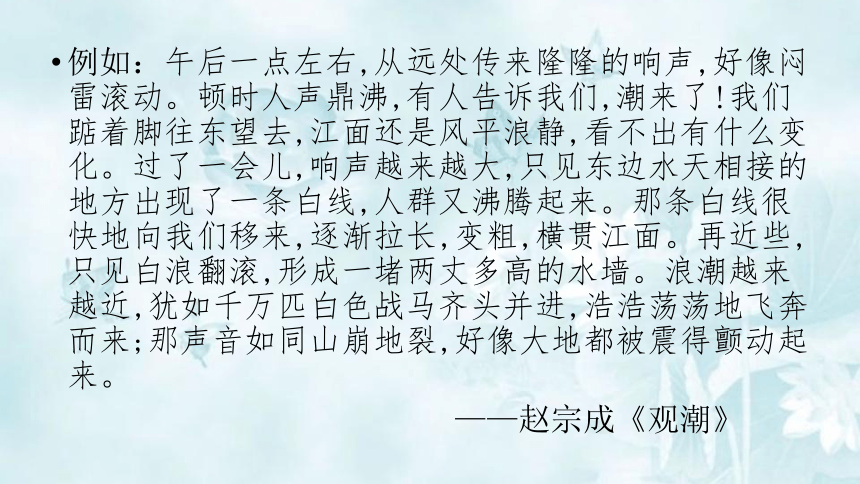 •例如：午后一点左右,从远处传来隆隆的响声,好像闷
雷滚动。顿时人声鼎沸,有人告诉我们,潮来了!我们
踮着脚往东望去,江面还是风平浪静,看不出有什么变
化。过了一会儿,响声越来越大,只见东边水天相接的
地方出现了一条白线,人群又沸腾起来。那条白线很
快地向我们移来,逐渐拉长,变粗,横贯江面。再近些,
只见白浪翻滚,形成一堵两丈多高的水墙。浪潮越来
越近,犹如千万匹白色战马齐头并进,浩浩荡荡地飞奔
而来;那声音如同山崩地裂,好像大地都被震得颤动起
来。
——赵宗成《观潮》